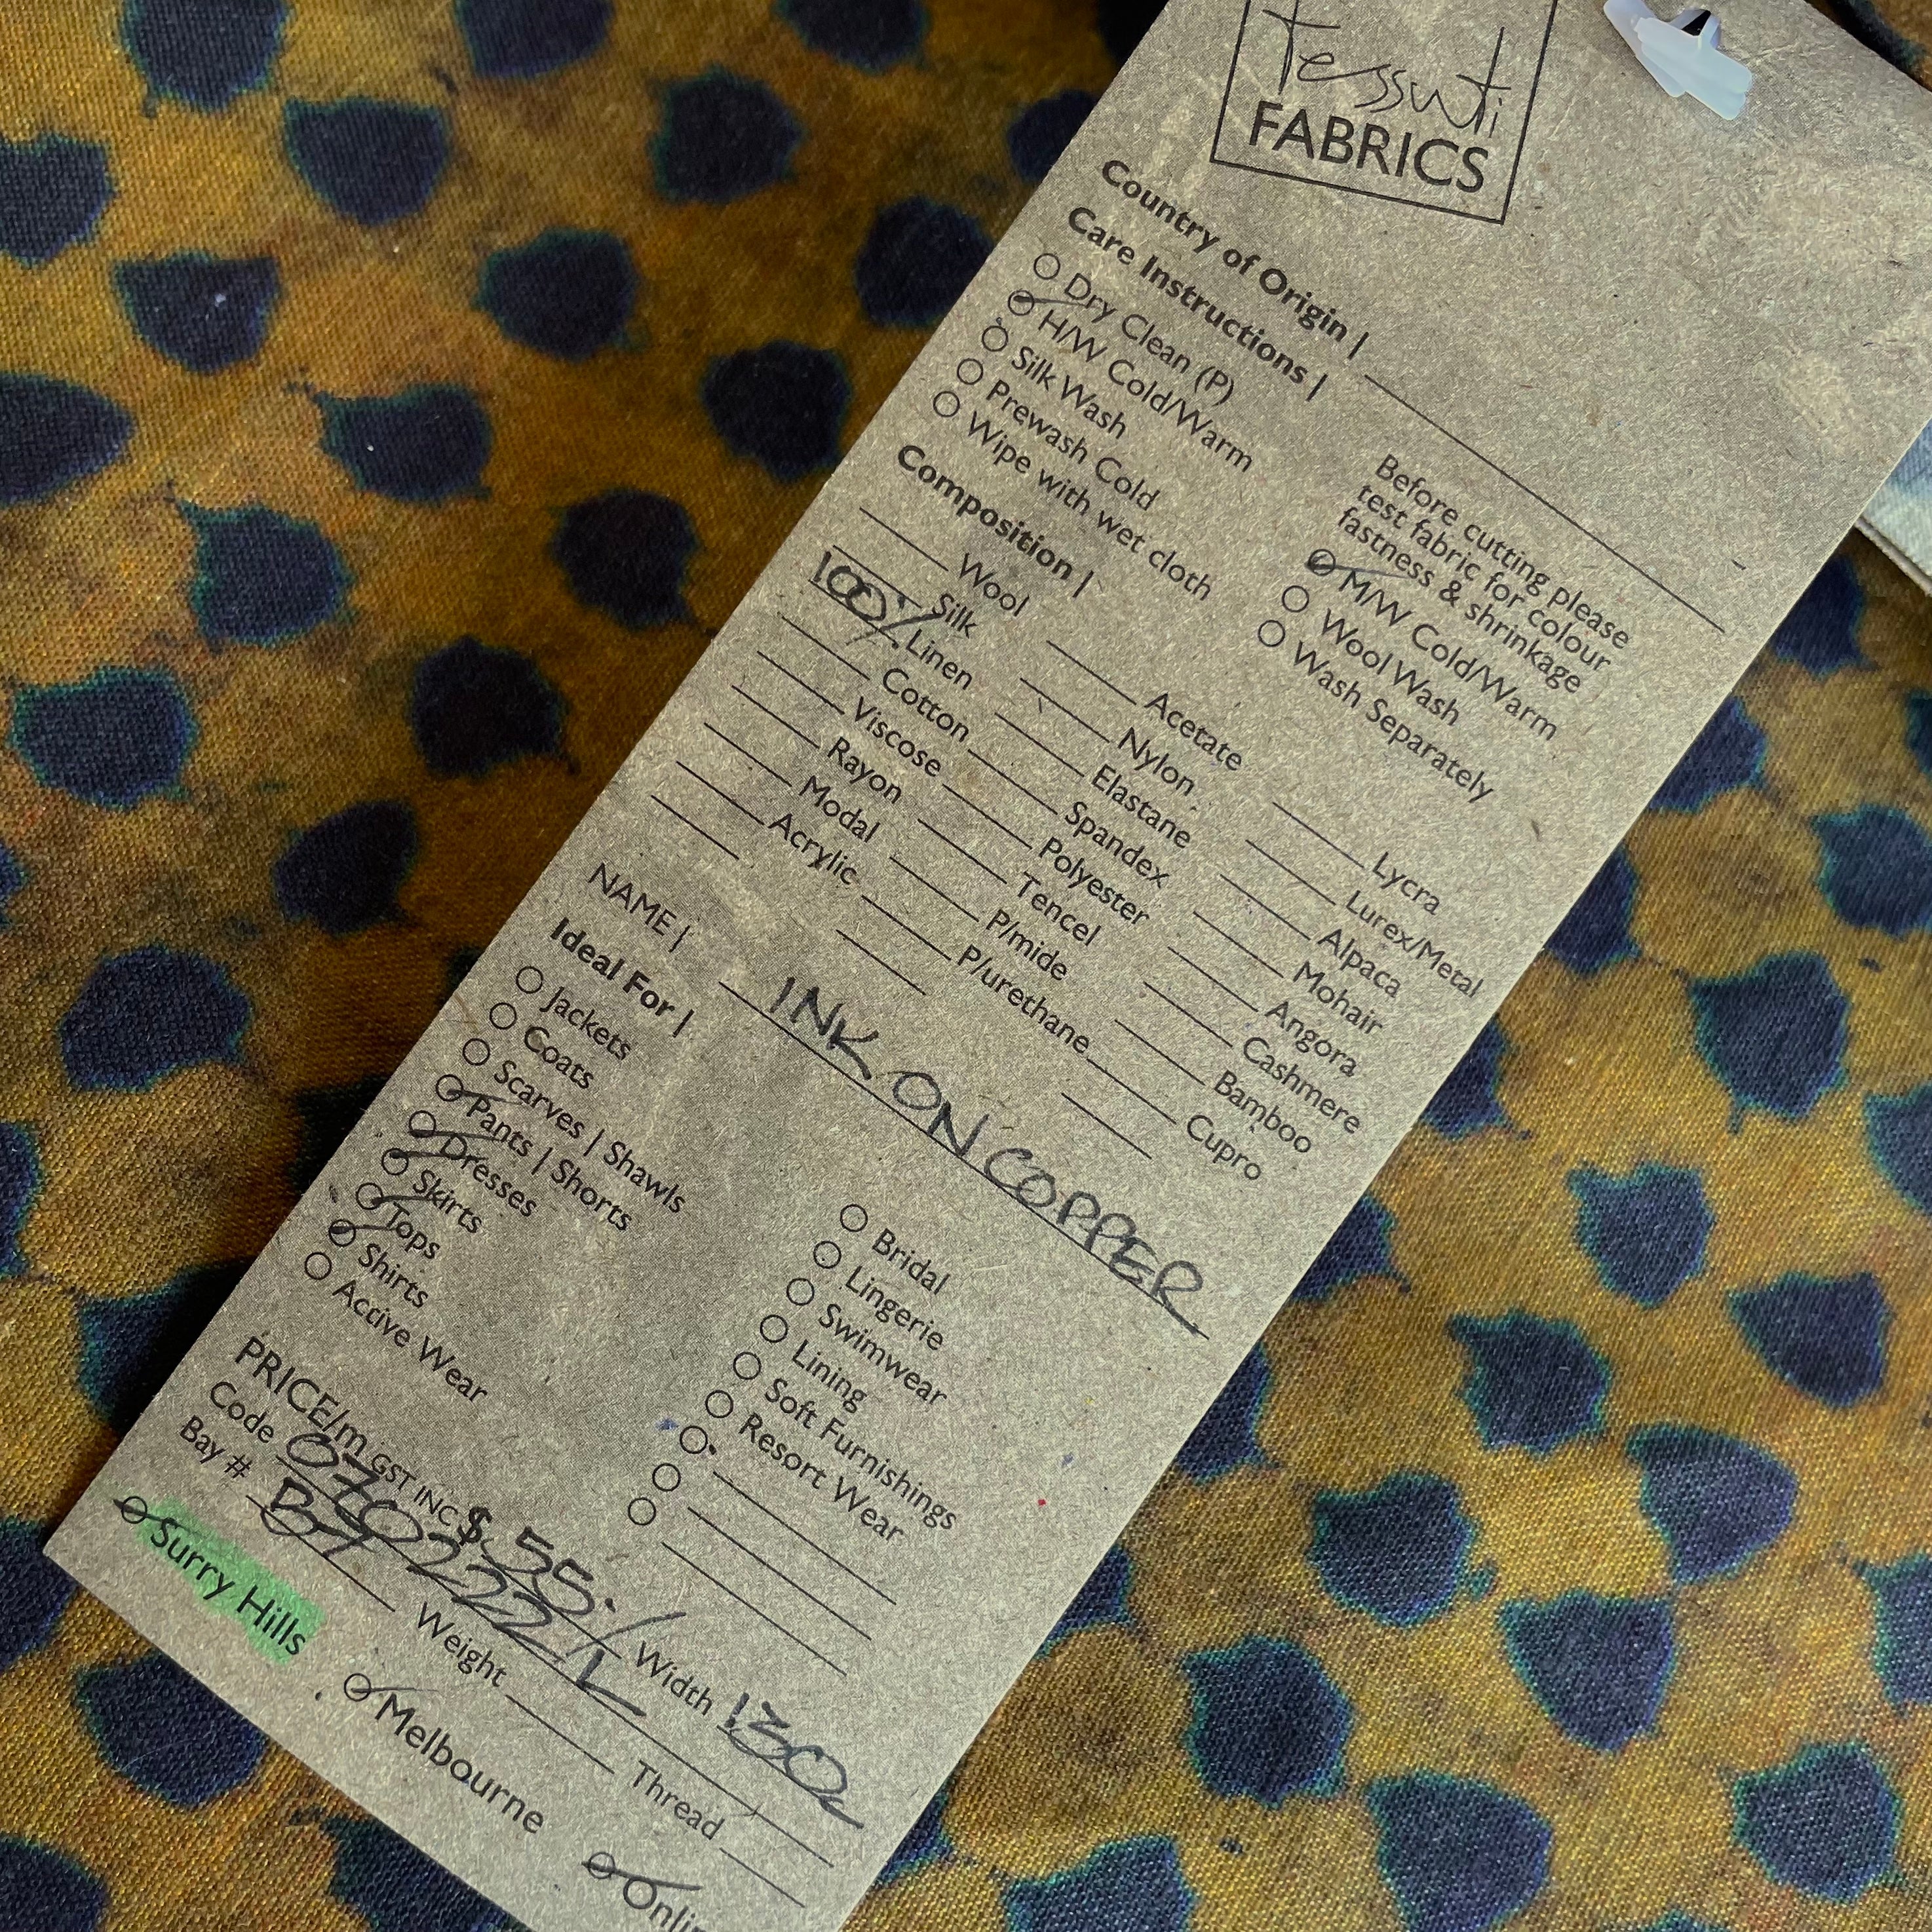 tessuti
FABRICS
Country of Origin |
Care Instructions |
Dry Clean (P)
H/W Cold/Warm
Silk Wash
Prewash Cold
Wipe with wet cloth
Before cutting please
test fabric for colour
fastness & shrinkage
M/W Cold/Warm
Wool Wash
Wash Separately
Composition |
Wool
Silk
100% Linen
Cotton
Viscose
Rayon
Modal
Acrylic
Acetate
Nylon
Elastane
Spandex
Polyester
Tencel
P/mide
P/urethane
Lycra
Lurex/Metal
Alpaca
Mohair
Angora
Cashmere
Bamboo
Cupro
NAME | INK ON COPPER
Ideal For |
Jackets
Coats
Scarves | Shawls
Pants | Shorts
Dresses
Skirts
Tops
Shirts
Active Wear
Bridal
Lingerie
Swimwear
Lining
Soft Furnishings
Resort Wear
PRICE/m GST INC $55. Width 130
Code 070222/L
Bay # Weight Thread
Surry Hills Melbourne